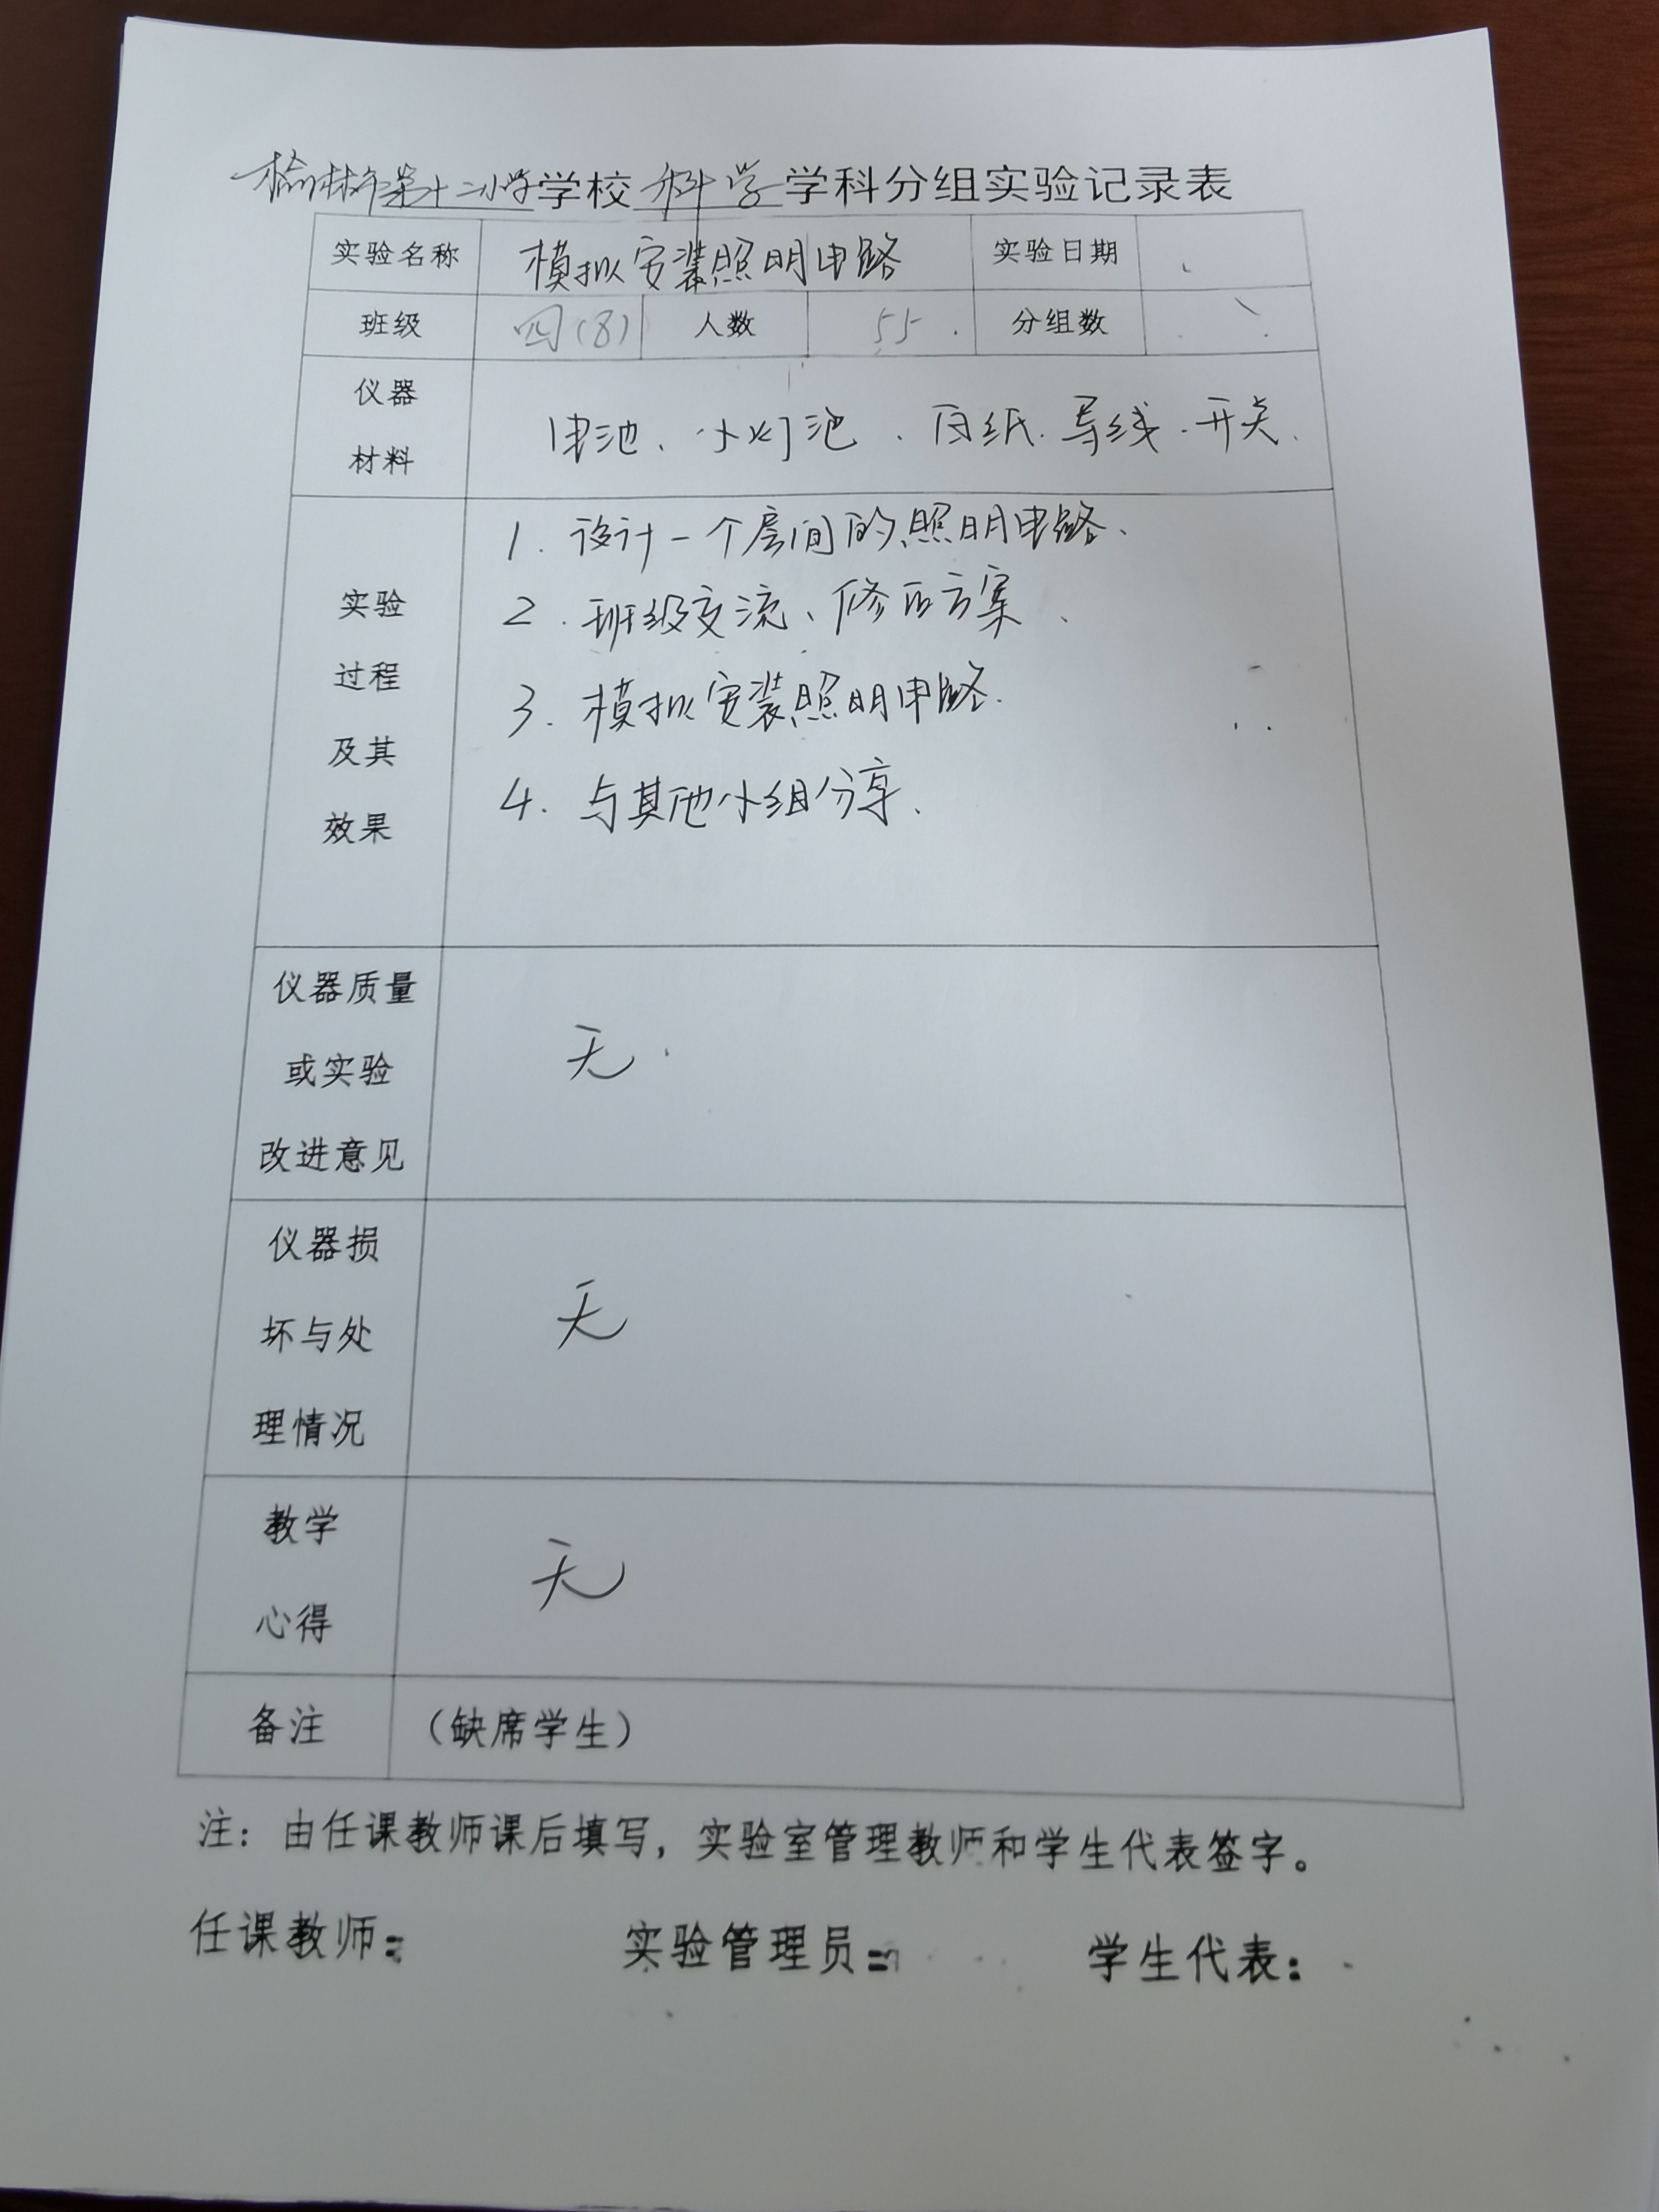 榆林市第十二小学学校科学学科分组实验记录表
实验名称 模拟安装照明电路 实验日期
班级 四(8) 人数 55. 分组数
仪器
材料
电池、小灯池、白纸.导线.开关.
实验
过程
及其
效果
1. 设计一个房间的照明电路、
2. 班级交流、修改方案、
3. 模拟安装照明电路.
4. 与其他小组分享.
仪器质量
或实验
改进意见
无.
仪器损
坏与处
理情况
无
教学
心得
无
备注 (缺席学生)
注：由任课教师课后填写，实验室管理教师和学生代表签字。
任课教师： 实验管理员： 学生代表：